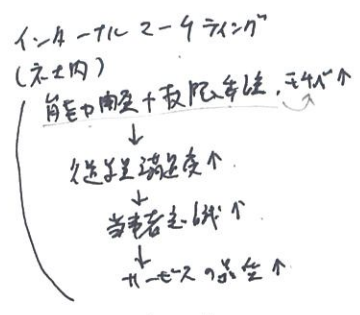 インターナルマーケティング
(社内)
能力開発+権限委譲,モチベ↑
↓
従業員満足度↑
↓
当事者意識↑
↓
サービスの品質↑